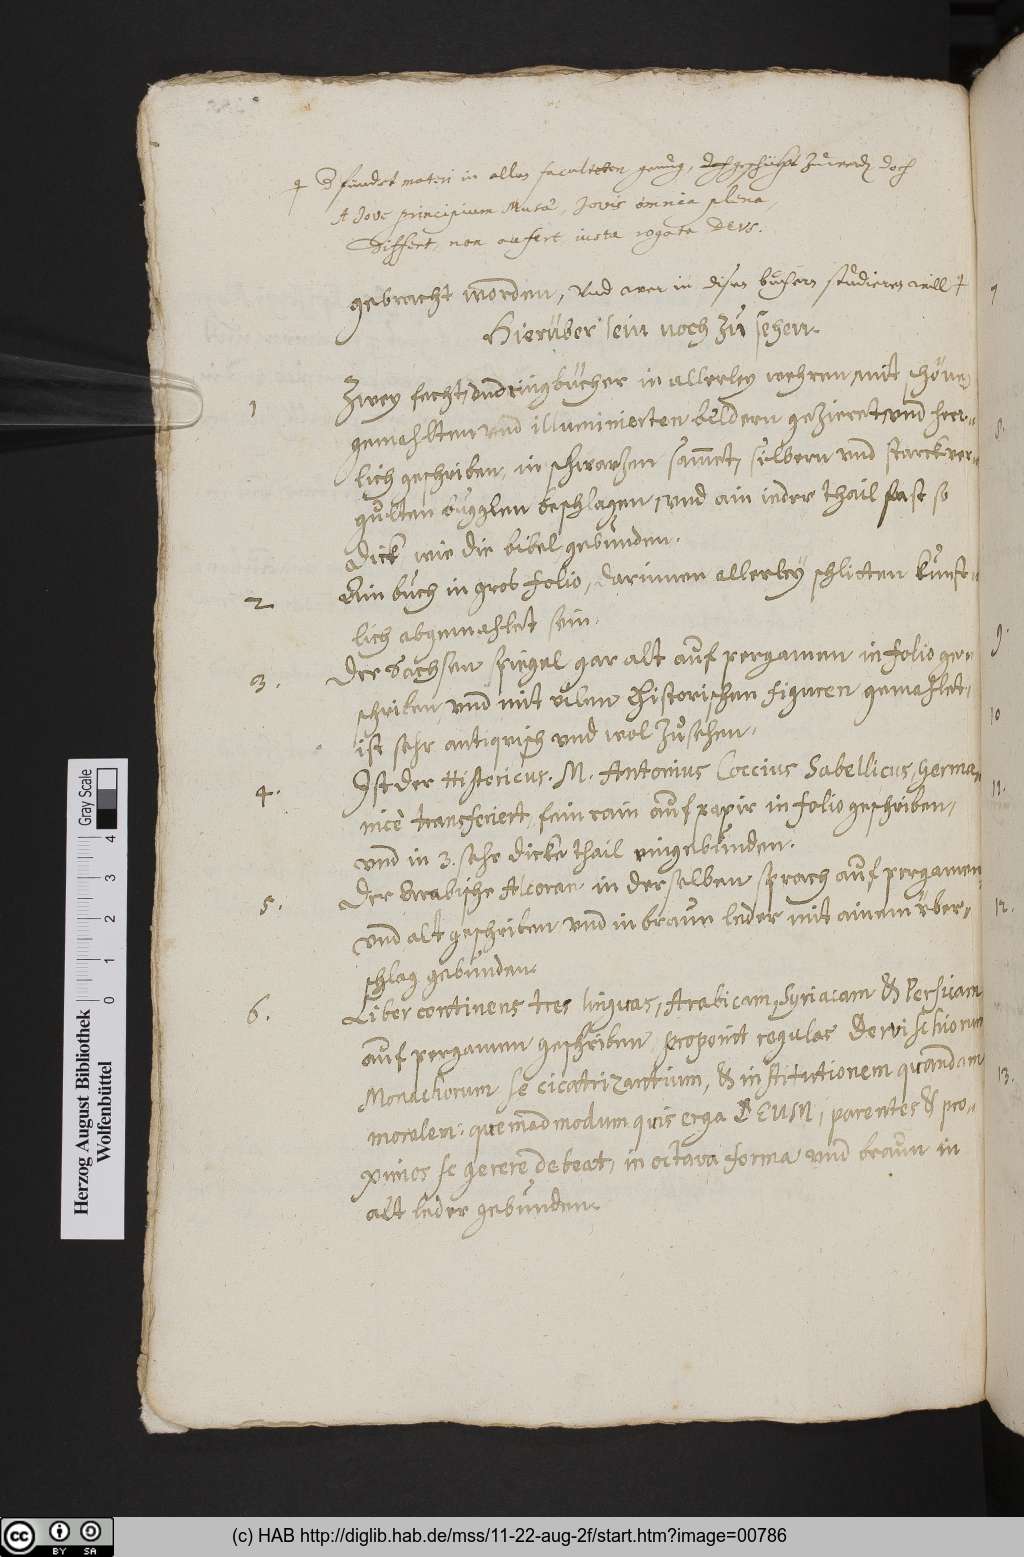 d fundet materi in allen faculteten genug, doch
A Jove principium Musæ, Jovis omnia plena,
Differt, non aufert iusta rogata DEVS.
gebracht worden, Vnd wer in disen büchern studieren will
Hierüber sein noch zu sehen.
1 Zwey fecht, vnd ringbücher in allerley wehren, mit schönen
gemahlten vnd illuminierten bildern gezieret, vnd herr-
lich geschriben, in schwarzen sammet, silbern vnd starck ver-
gulten bugglen beschlagen, vnd ain ieder thail fast so
dick wie die bibel gebunden.
2 Ain buch in gros folio, darinnen allerley schlitten kunst-
lich abgemahlet sein.
3. Der Sachsen spiegel gar alt auf pergamen in folio ge-
schriben, vnd mit vilen historischen figuren gemahlet,
ist sehr antiquisch vnd wol zu sehen.
4. Ist der Historicus. M. Antonius Coccius Sabellicus, Germa-
nicè transferiert, fein rain auf papir in folio geschriben,
vnd in 3. sehr dicke thail eingebunden.
5. Der Arabische Alcoran in derselben sprach auf pergamen,
vnd alt geschriben vnd in braun leder mit ainem über-
schlag gebunden.
6. Liber continens tres linguas, Arabicam, Syriacam & Persicam
auf pergamen geschriben, proponit regulas Dervischiorum
Monachorum se cicatrizantium, & institutionem quandam
moralem: quemadmodum quis erga DEUM, parentes & pro-
ximos se gerere debeat, in octava forma vnd braun in
alt leder gebunden.
8.
9.
10
11.
12.
13.
Herzog August Bibliothek
Wolfenbüttel
0 1 2 3 4
Gray Scale
cc BY SA
(c) HAB http://diglib.hab.de/mss/11-22-aug-2f/start.htm?image=00786